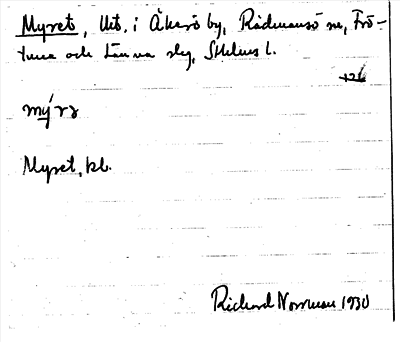 Myret, lht. i Åkerö by, Rådmansö sn, Frö-
tuna och Länna slg, Sthlms l.
+26
mýrə
Myret, bl.
Richard Norrman 1930